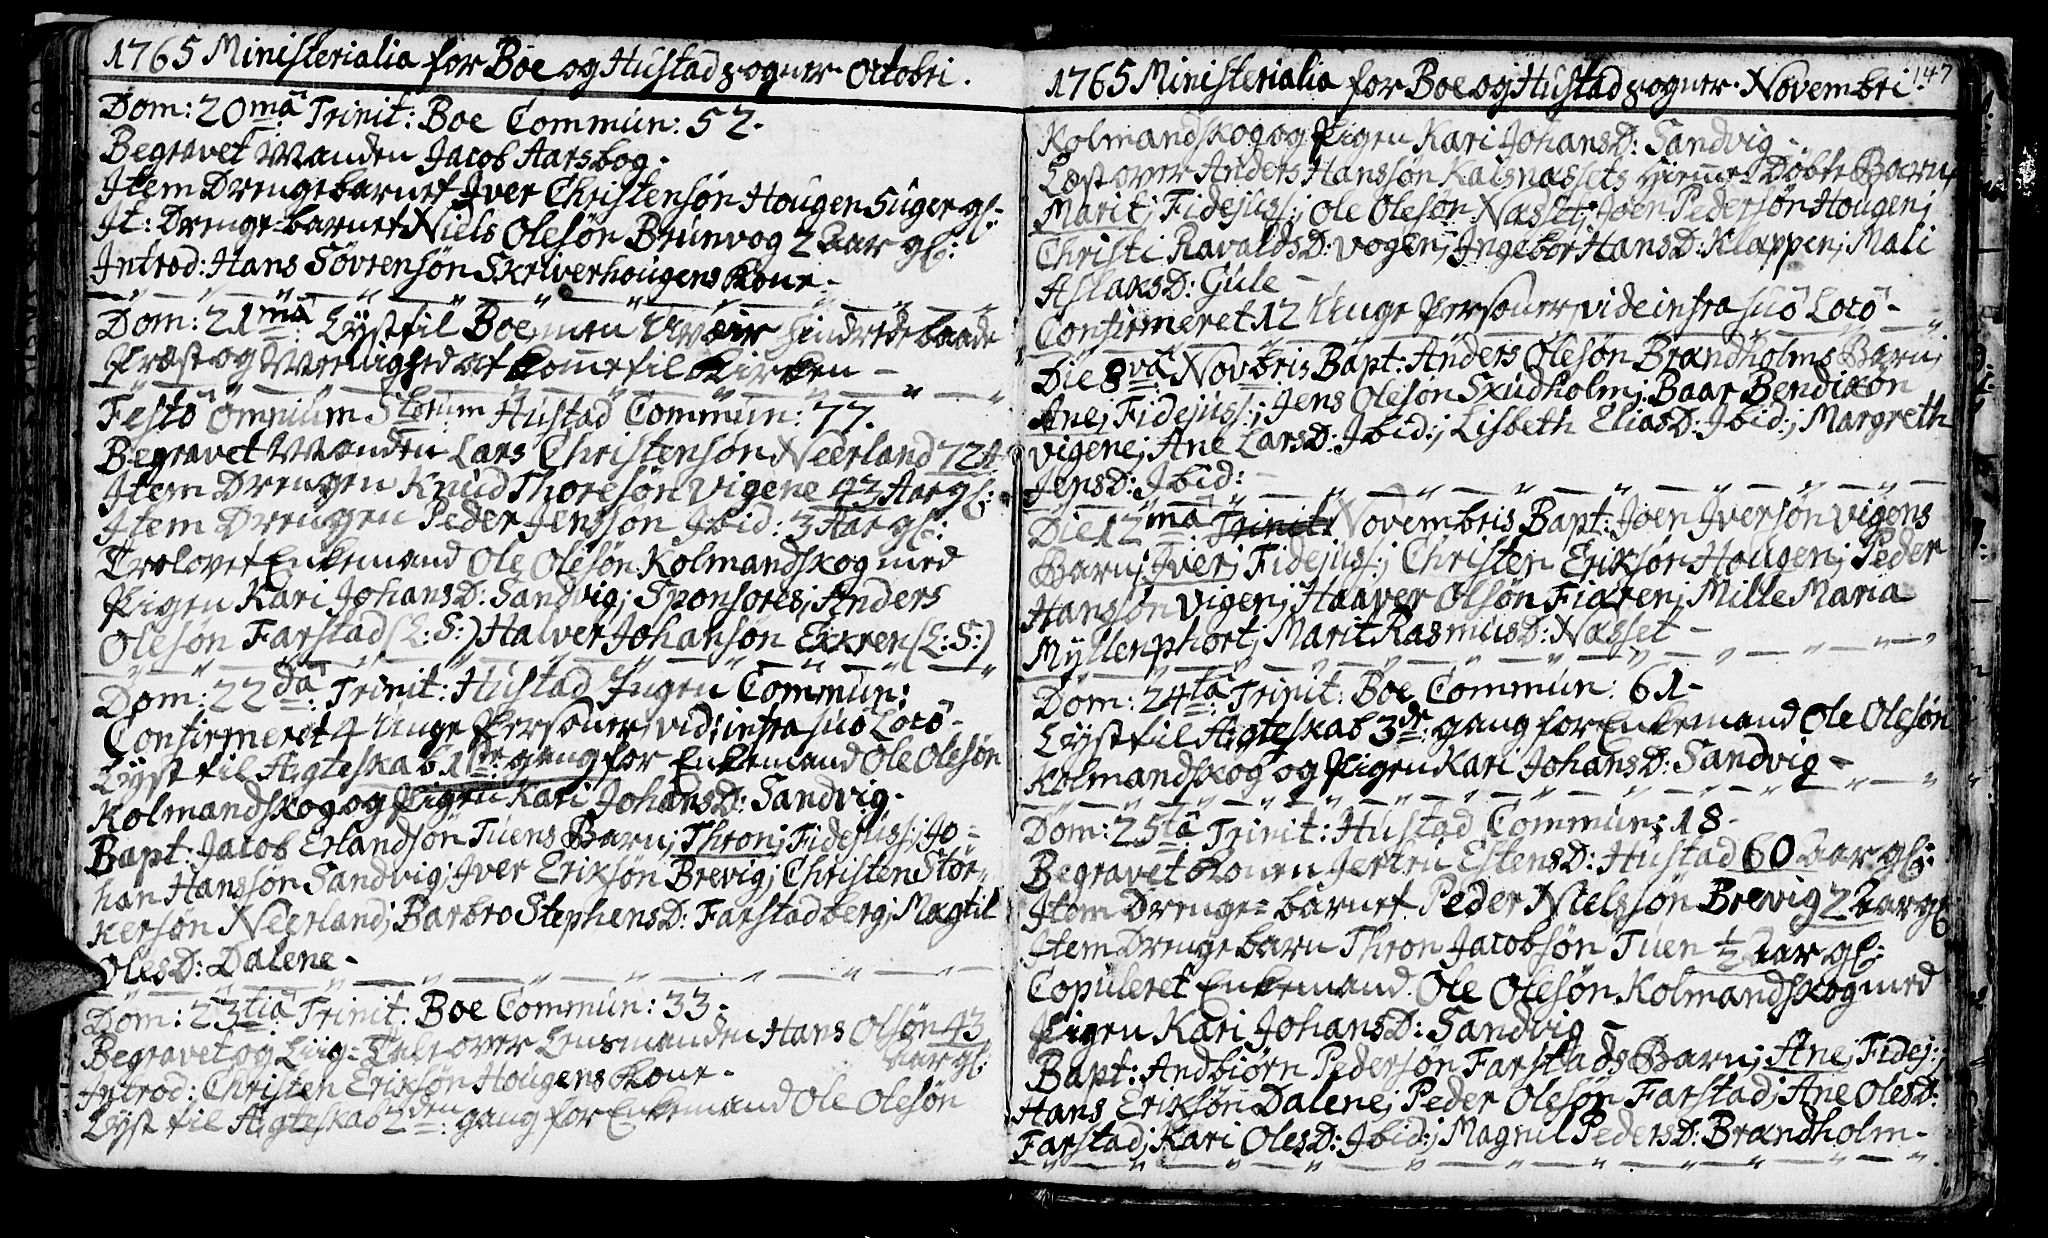 1765 Ministerialia for Boe og Hustad sogner Octobri.
Dom: 20mâ Trinit: Boe Commun: 52.
Begravet Manden Jacob Aarsbog.
Item Drengebarnet Iver Christensøn Hougen 5 uger gl:
It: Drenge-barnet Niels Olesøn Brunvog 2 Aar gl:
Introd: Hans Sørrensøn Skriverhougens Kone.
Dom: 21mâ Lyst til Boe, men Uveir hindrede baade
Præst og Menighed at komme til Kirken
Festo Omnium Storum Hustad Commun: 77.
Begravet Manden Lars Christensøn Neerland 72 A
Item Drengen Knud Thoresøn Vigene 43 Aar gl:
Item Drengen Peder Jenssøn Ibid: 3 Aar gl:
Trolovet Enkemand Ole Olesøn Kolmandskog med
Pigen Kari JohansD: Sandvig; Sponsores; Anders
Olesøn Farstad (L:S:) Halver Johansøn Exxren (L:S:)
Dom: 22dâ Trinit: Hustad Ingen Commun:
Confirmeret 4 Unge Personer, vid: infra suo Locô
Lyst til Ægteskab 1ste gang for Enkemand Ole Olesøn
Kolmandskog og Pigen Kari JohansD: Sandvig.
Bapt: Jacob Erlandsøn Tuens Barn; Thron; Fidejuss:; Jo-
han Hanssøn Sandvig; Iver Eriksøn Brevig; Christen Stör-
kersøn Neerland; Barbro StephensD: Farstadberg; Magtil
OlesD: Dalene.
Dom: 23tiâ Trinit: Boe Commun: 33.
Begravet og Liig-Tale over Lensmanden Hans Olsøn 43
Aar gl:
Introd: Christen Eriksøn Hougens Kone.
Lyst til Ægteskab 2den gang for Enkemand Ole Olesøn
147
1765 Ministerialia for Boe og Hustad sogner Novembri.
Kolmandskog og Pigen Kari JohansD: Sandvig
Læst over Anders Hanssøn Kalsnæssets Hiemme-Døbte Barn
Marit; Fidejuss:; Ole Olesøn Næsset; Joen Pedersøn Hougen;
Christi RavaldsD: Vogen; Ingebor HansD: Klappen; Mali
AslaksD: Gule
Confirmeret 12 Unge Personer, vide infra suô Locô
Die 8vâ Novbris Bapt: Anders Olesøn Brandholms Barn;
Ane; Fidejuss:; Jens Olesøn Skudholm; Baar Bendixøn
Vigene; Ane LarsD: Ibid:; Lisbeth EliasD: Ibid:; Margreth
JensD: Ibid:
Die 12mâ Trinit: Novembris Bapt: Joen Iversøn Vigens
Barn; Iver; Fidejuss:; Christen Eriksøn Hougen; Peder
Hanssøn Vigen; Haaver Olsøn Fiæren; Mille Maria
Myllenphort; Marit RasmusD: Næsset
Dom: 24tâ Trinit: Boe Commun: 61.
Lyst til Ægteskab 3de gang for Enkemand Ole Olesøn
Kolmandskog og Pigen Kari JohansD: Sandvig
Dom: 25tâ Trinit: Hustad Commun: 18.
Begravet Konen Jertru EstensD: Hustad 60 Aar gl:
Item Drenge-barnet Peder Nielssøn Brevig 2 Aar gl
Item Drengebarn Thron Jacobsøn Tuen ½ Aar gl:
Copuleret Enkemand Ole Olesøn Kolmandskog med
Pigen Kari JohansD: Sandvig
Bapt: Andbiørn Pedersøn Farstads Barn; Ane; Fidej:;
Hans Eriksøn Dalene; Peder Olesøn Farstad; Ane OlesD:
Farstad; Kari OlesD: Ibid:; Magnil PedersD: Brandholm.